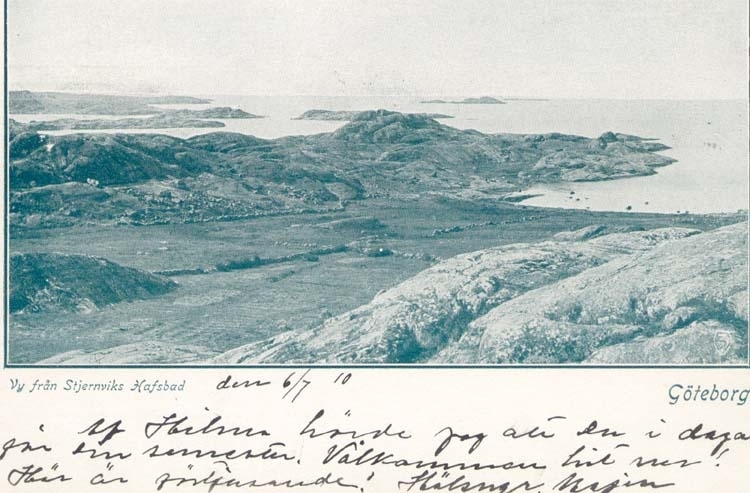 Vy från Stjernviks Hafsbad
den 6/7 10
Göteborg
Af Hilma hörde jag att Du i dagar
får din semester. Välkommen hit ner!
Här är förtjusande! Hälsngr